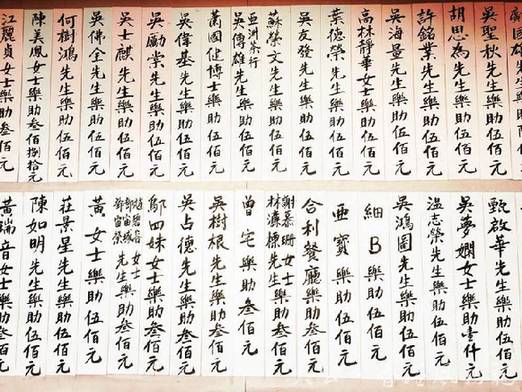 吳聖秋先生樂助伍佰元
胡思為先生樂助伍佰元
許銘業先生樂助伍佰元
吳海晏先生樂助伍佰元
高林靜華女士樂助伍佰元
葉德榮先生樂助伍佰元
吳友發先生樂助伍佰元
蘇榮文先生樂助伍佰元
亞洲茶行
吳傳雄先生樂助伍佰元
萬國健博士樂助伍佰元
吳偉基先生樂助伍佰元
吳勵棠先生樂助伍佰元
吳士麒先生樂助伍佰元
吳佛全先生樂助伍佰元
何樹鴻先生樂助伍佰元
陳美鳳女士樂助叁佰捌拾元
江麗貞女士樂助叁佰元
甄啟華先生樂助伍佰元
吳夢嫻女士樂助壹仟元
溫志榮先生樂助伍佰元
吳鴻圖先生樂助伍佰元
細B樂助伍佰元
亜寶樂助伍佰元
合利餐廳樂助叁佰元
謝慕珊女士
林濂標先生樂助叁佰元
曾宅樂助叁佰元
吳樹根先生樂助叁佰元
吳占德先生樂助叁佰元
鄔四妹女士樂助叁佰元
先生樂助叁佰元
黃女士樂助伍佰元
莊景星先生樂助伍佰元
陳如明先生樂助伍佰元
黃瑞音女士樂助叁佰元